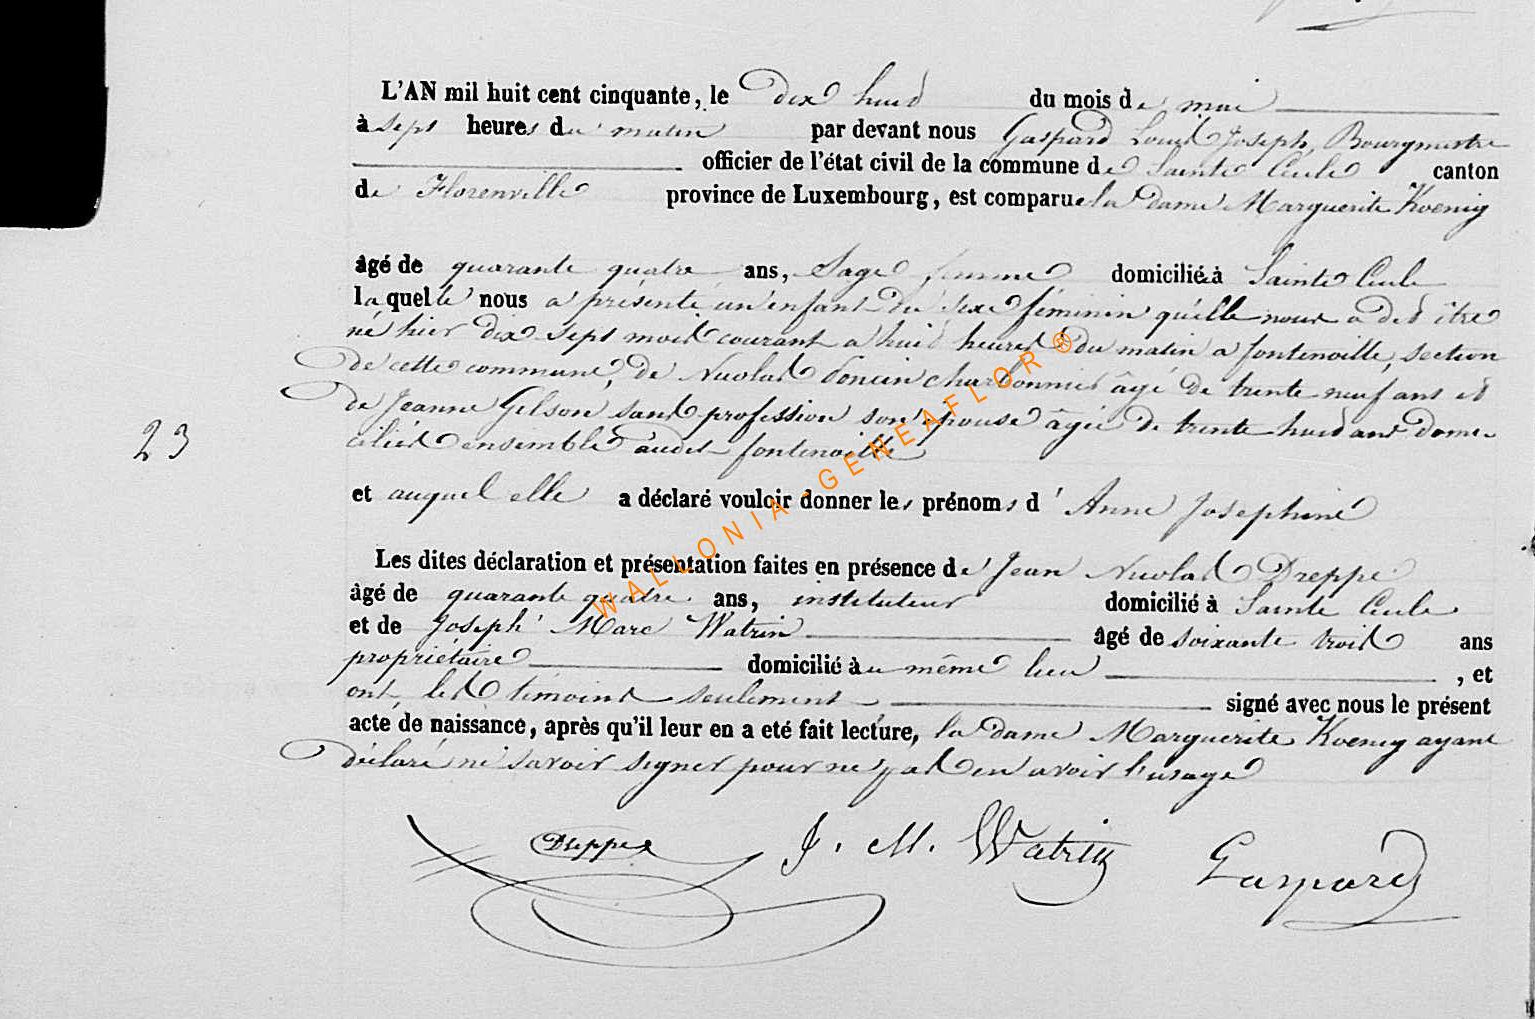 L'AN mil huit cent cinquante, le dix huit du mois de mai
à sept heures du matin par devant nous Gaspard Louis Joseph, Bourgmestre
officier de l'état civil de la commune de Sainte Cécile canton
de Florenville province de Luxembourg, est comparue la dame Marguerite Koenig
âgé de quarante quatre ans, Sage femme domiciliée à Sainte Cécile
laquelle nous a présenté un enfant du sexe féminin qu'elle nous a dit être
né hier dix sept mois courant a huit heures du matin a fontenoille, section
de cette commune, de Nicolas Poncin charbonnier âgé de trente neuf ans et
de Jeanne Gelson sans profession son épouse âgée de trente huit ans domi-
ciliés ensemble audit fontenoille
23
et auquel elle a déclaré vouloir donner les prénoms d'Anne Josephine
Les dites déclaration et présentation faites en présence de Jean Nicolas Dreppe
âgé de quarante quatre ans, instituteur domicilié à Sainte Cécile
et de Joseph Marc Watrin âgé de soixante trois ans
propriétaire domicilié au même lieu, et
ont, les témoins seulement signé avec nous le présent
acte de naissance, après qu'il leur en a eté fait lecture, la dame Marguerite Koenig ayant
déclaré ne savoir signer pour ne pas en avoir l'usage
Dreppe J. M. Watrin Gaspard
WALLONIA-GENEAFLOR ®